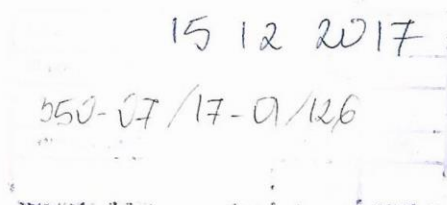 15 12 2017
550-07/17-01/126